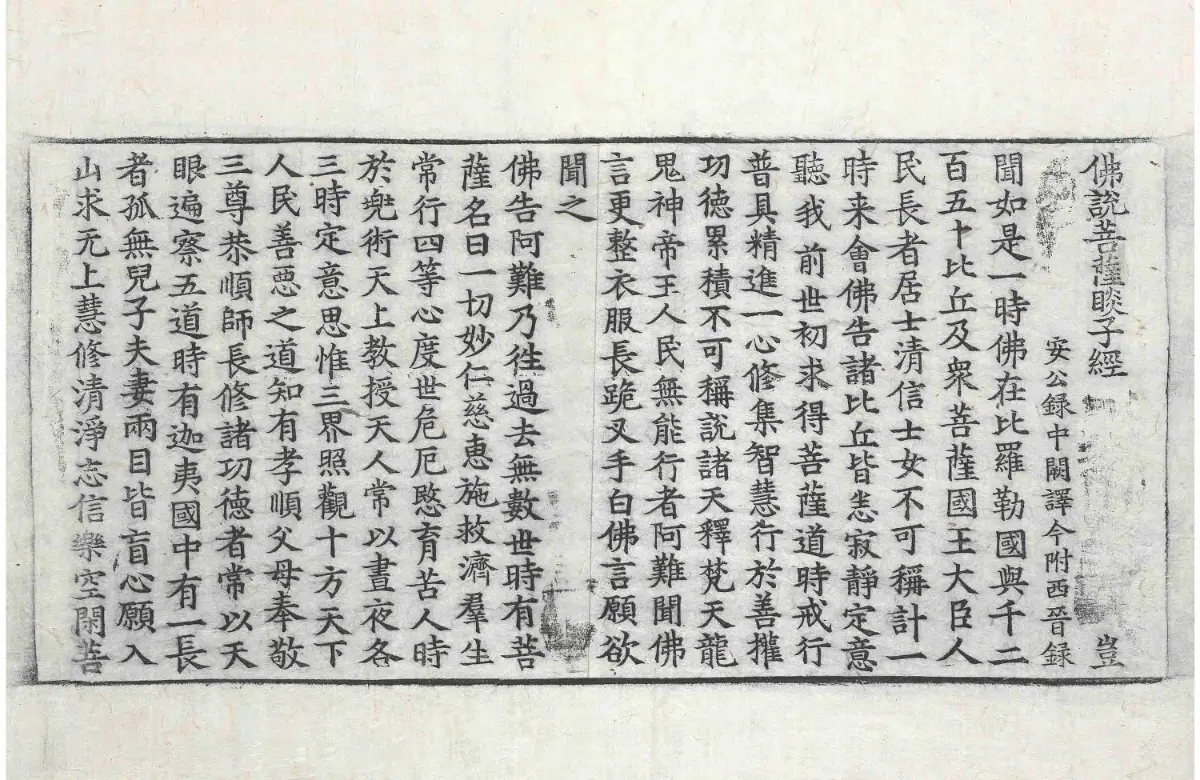 佛說菩薩睒子經 豈
安公録中闕譯今附西晉録
聞如是一時佛在比羅勒國與千二
百五十比丘及衆菩薩國王大臣人
民長者居士清信士女不可稱計一
時来會佛告諸比丘皆悉寂靜定意
聽我前世初求得菩薩道時戒行
普具精進一心修集智慧行於善攉
功德累積不可稱說諸天釋梵天龍
鬼神帝王人民無能行者阿難聞佛
言更整衣服長跪叉手白佛言願欲
聞之
佛告阿難乃徃過去無數世時有菩
薩名曰一切妙仁慈惠施救濟羣生
常行四等心度世危厄愍育苦人時
於兠術天上教授天人常以晝夜各
三時定意思惟三界照觀十方天下
人民善惡之道知有孝順父母奉敬
三尊恭順師長修諸功德者常以天
眼遍察五道時有迦夷國中有一長
者孤無兒子夫妻兩目皆盲心願入
山求无上慧修清淨志信樂空閑菩